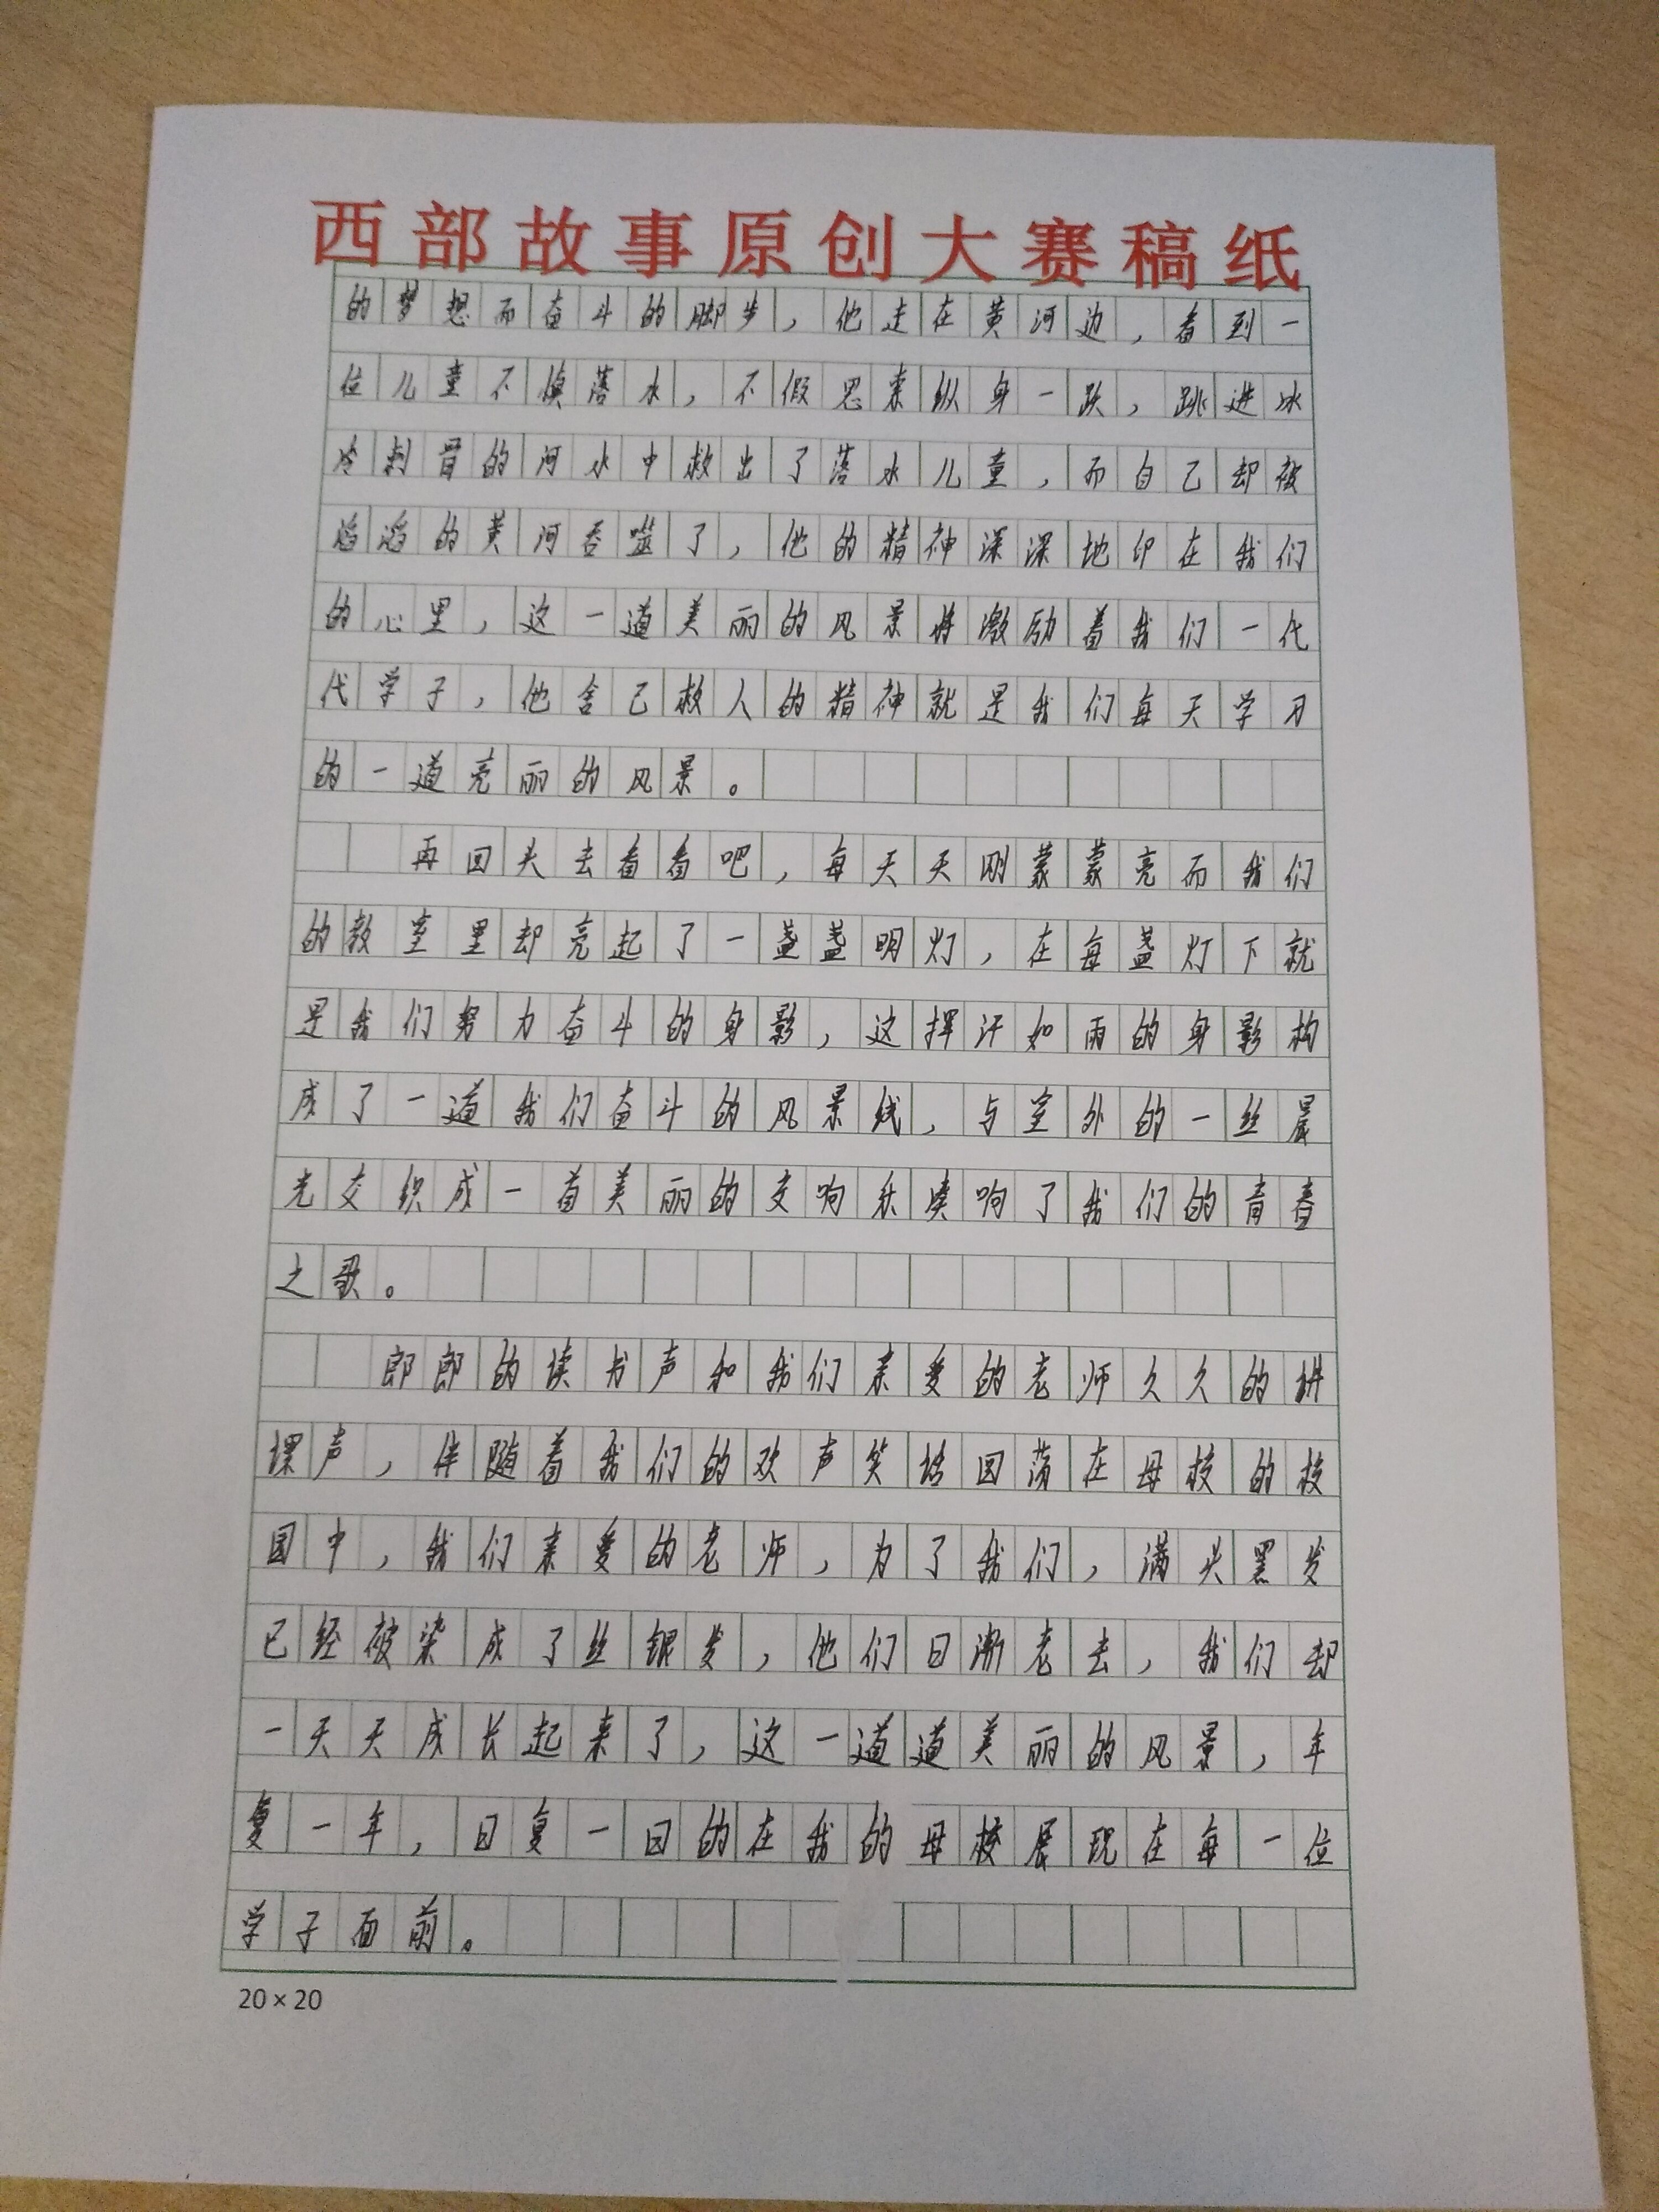 西部故事原创大赛稿纸
的梦想而奋斗的脚步，他走在黄河边，看到一
位儿童不慎落水，不假思索纵身一跃，跳进冰
冷刺骨的河水中救出了落水儿童，而自己却被
滔滔的黄河吞噬了，他的精神深深地印在我们
的心里，这一道美丽的风景将激励着我们一代
代学子，他舍己救人的精神就是我们每天学习
的一道亮丽的风景。
再回头去看看吧，每天天刚蒙蒙亮而我们
的教室里却亮起了一盏盏明灯，在每盏灯下就
是我们努力奋斗的身影，这挥汗如雨的身影构
成了一道我们奋斗的风景线，与室外的一丝晨
光交织成一首美丽的交响乐奏响了我们的青春
之歌。
郎郎的读书声和我们亲爱的老师久久的讲
课声，伴随着我们的欢声笑语回荡在母校的校
园中，我们亲爱的老师，为了我们，满头黑发
已经被染成了丝银发，他们日渐老去，我们却
一天天成长起来了，这一道道美丽的风景，年
复一年，日复一日的在我的母校展现在每一位
学子面前。
20×20